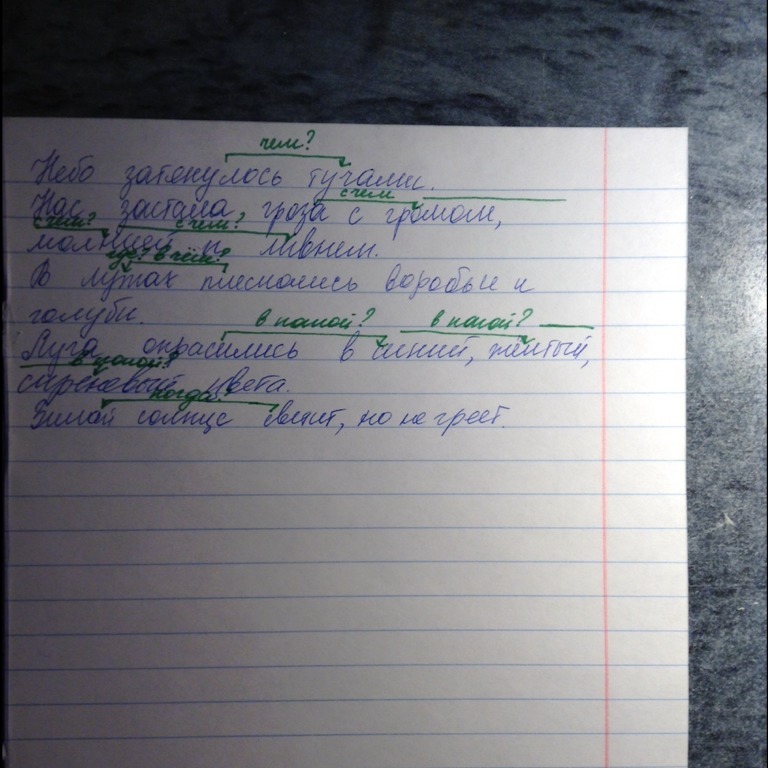 чем?
Небо затянулось тучами.
с чем
Нас застала гроза с громом,
с чем? с чем?
молнией и ливнем.
где? в чём?
В лужах плескались воробьи и
голуби.
в какой? в какой?
Луга окрасились в синий, жёлтый,
в какой?
сиреневый цвета.
когда?
Зимой солнце светит, но не греет.